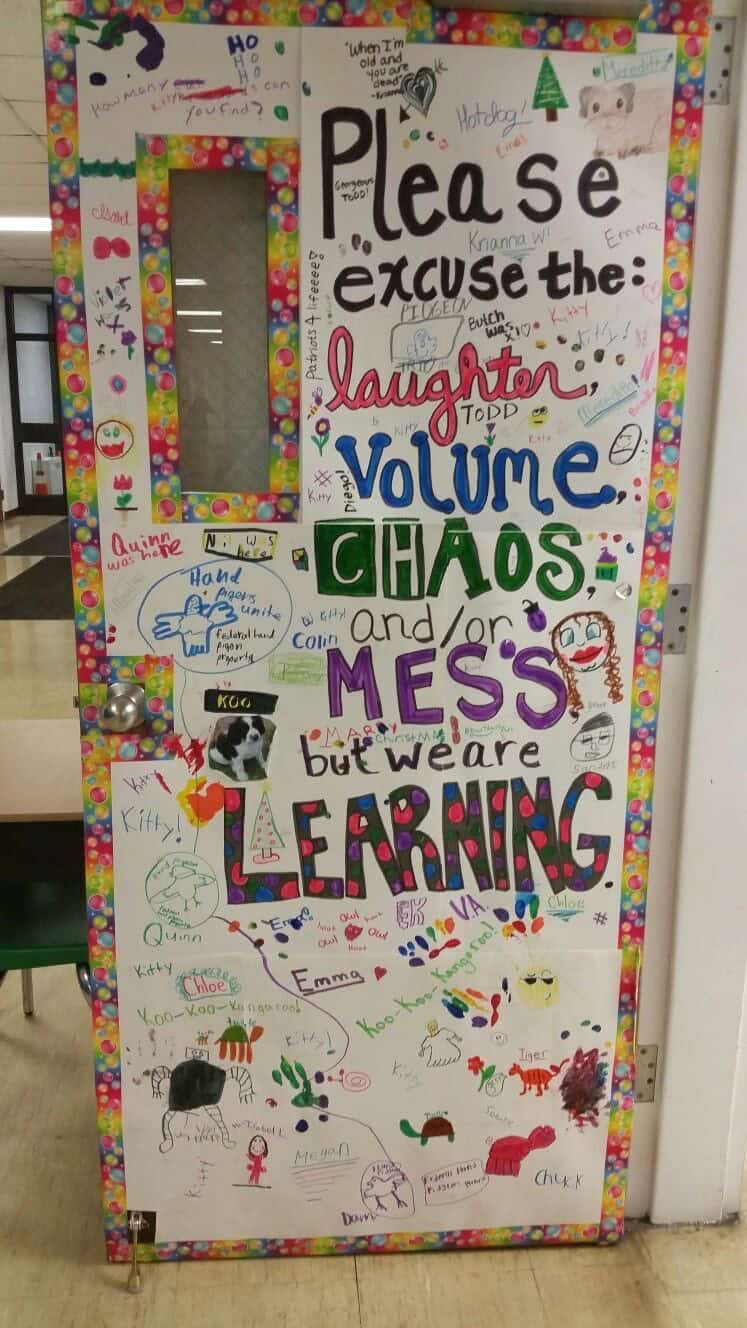 HO
HO
HO
HO
How many
Kittys can
you find?
"When I'm
old and
you are
dead"
-Krianna
Hotdog!
Emma
Meredith
Please
Gorgeous
TODD!
Krianna W!
Emma
excuse the:
Patriots 4 lifeeeee!
PIDGEON
Butch
was
Kitty
Kitty!
laughter,
TODD
Kitty
Kitty
VOLUME,
Diego!
Kitty
CHAOS,
Quinn
was here
Hand
Pigens
unite
federal hand
pigon
property
Kitty!
Colin
and/or
MESS
KOO
MARY
Christmas!
but we are
Sanders
LEARNING.
Kitty
Kitty!
Quinn
Emma
owl
owl
owl
V.A.
Chloe
#
Kitty
Chloe
Emma
Koo-Koo-Kangaroo!
Koo-Koo-Kangaroo!
Kitty!
Kitty
Tiger
Turtle
Kitty
Megan
Chukk